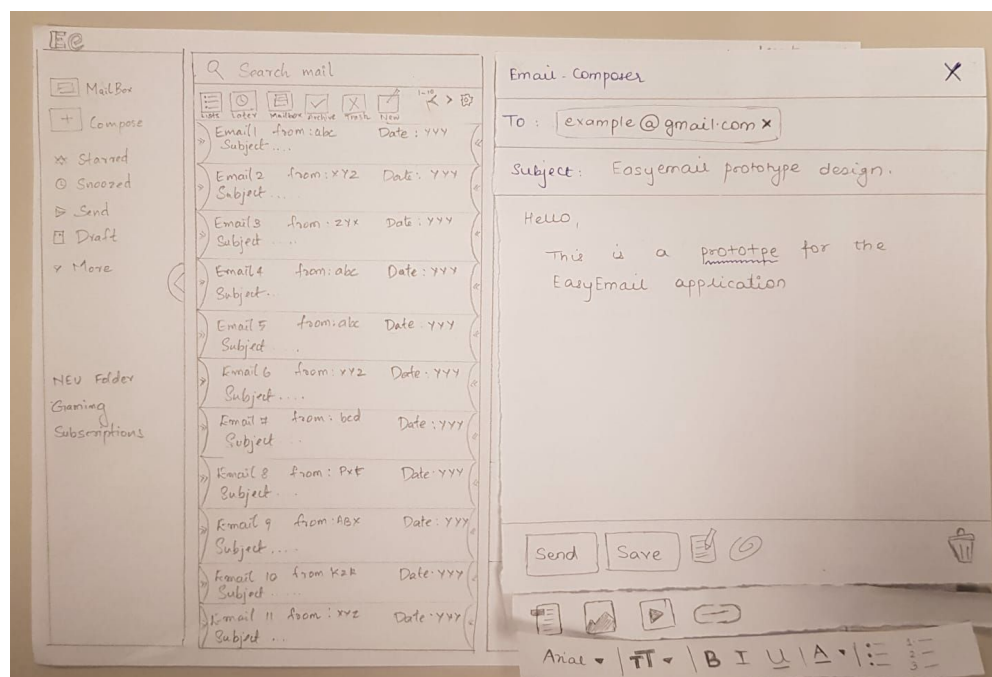 Ee
MailBox
Compose
Starred
Snoozed
Send
Draft
More
NEW Folder
Gaming
Subscriptions
Search mail
Later Mailbox Archive Trash New
1-10
Email 1 from : abc Date : YYY
Subject ....
Email 2 from : XYZ Date : YYY
Subject ...
Email 3 from - ZYX Date : YYY
Subject ....
Email 4 from : abc Date : YYY
Subject ..
Email 5 from : abc Date . YYY
Subject .
Email 6 from : XYZ Date : YYY
Subject ....
Email 7 from : bcd Date : YYY
Subject ...
Email 8 from : Pvt Date . YYY
Subject ....
Email 9 from : ABX Date : YYY
Subject ....
Email 10 from KZK Date . YYY
Subject ....
Email 11 from : XYZ Date . YYY
Subject ...
Email - Composer X
To : example@gmail.com x
Subject : Easyemail prototype design.
Hello,
This is a prototpe for the
EasyEmail application
Send Save
Arial TT B I U A 1 2 3